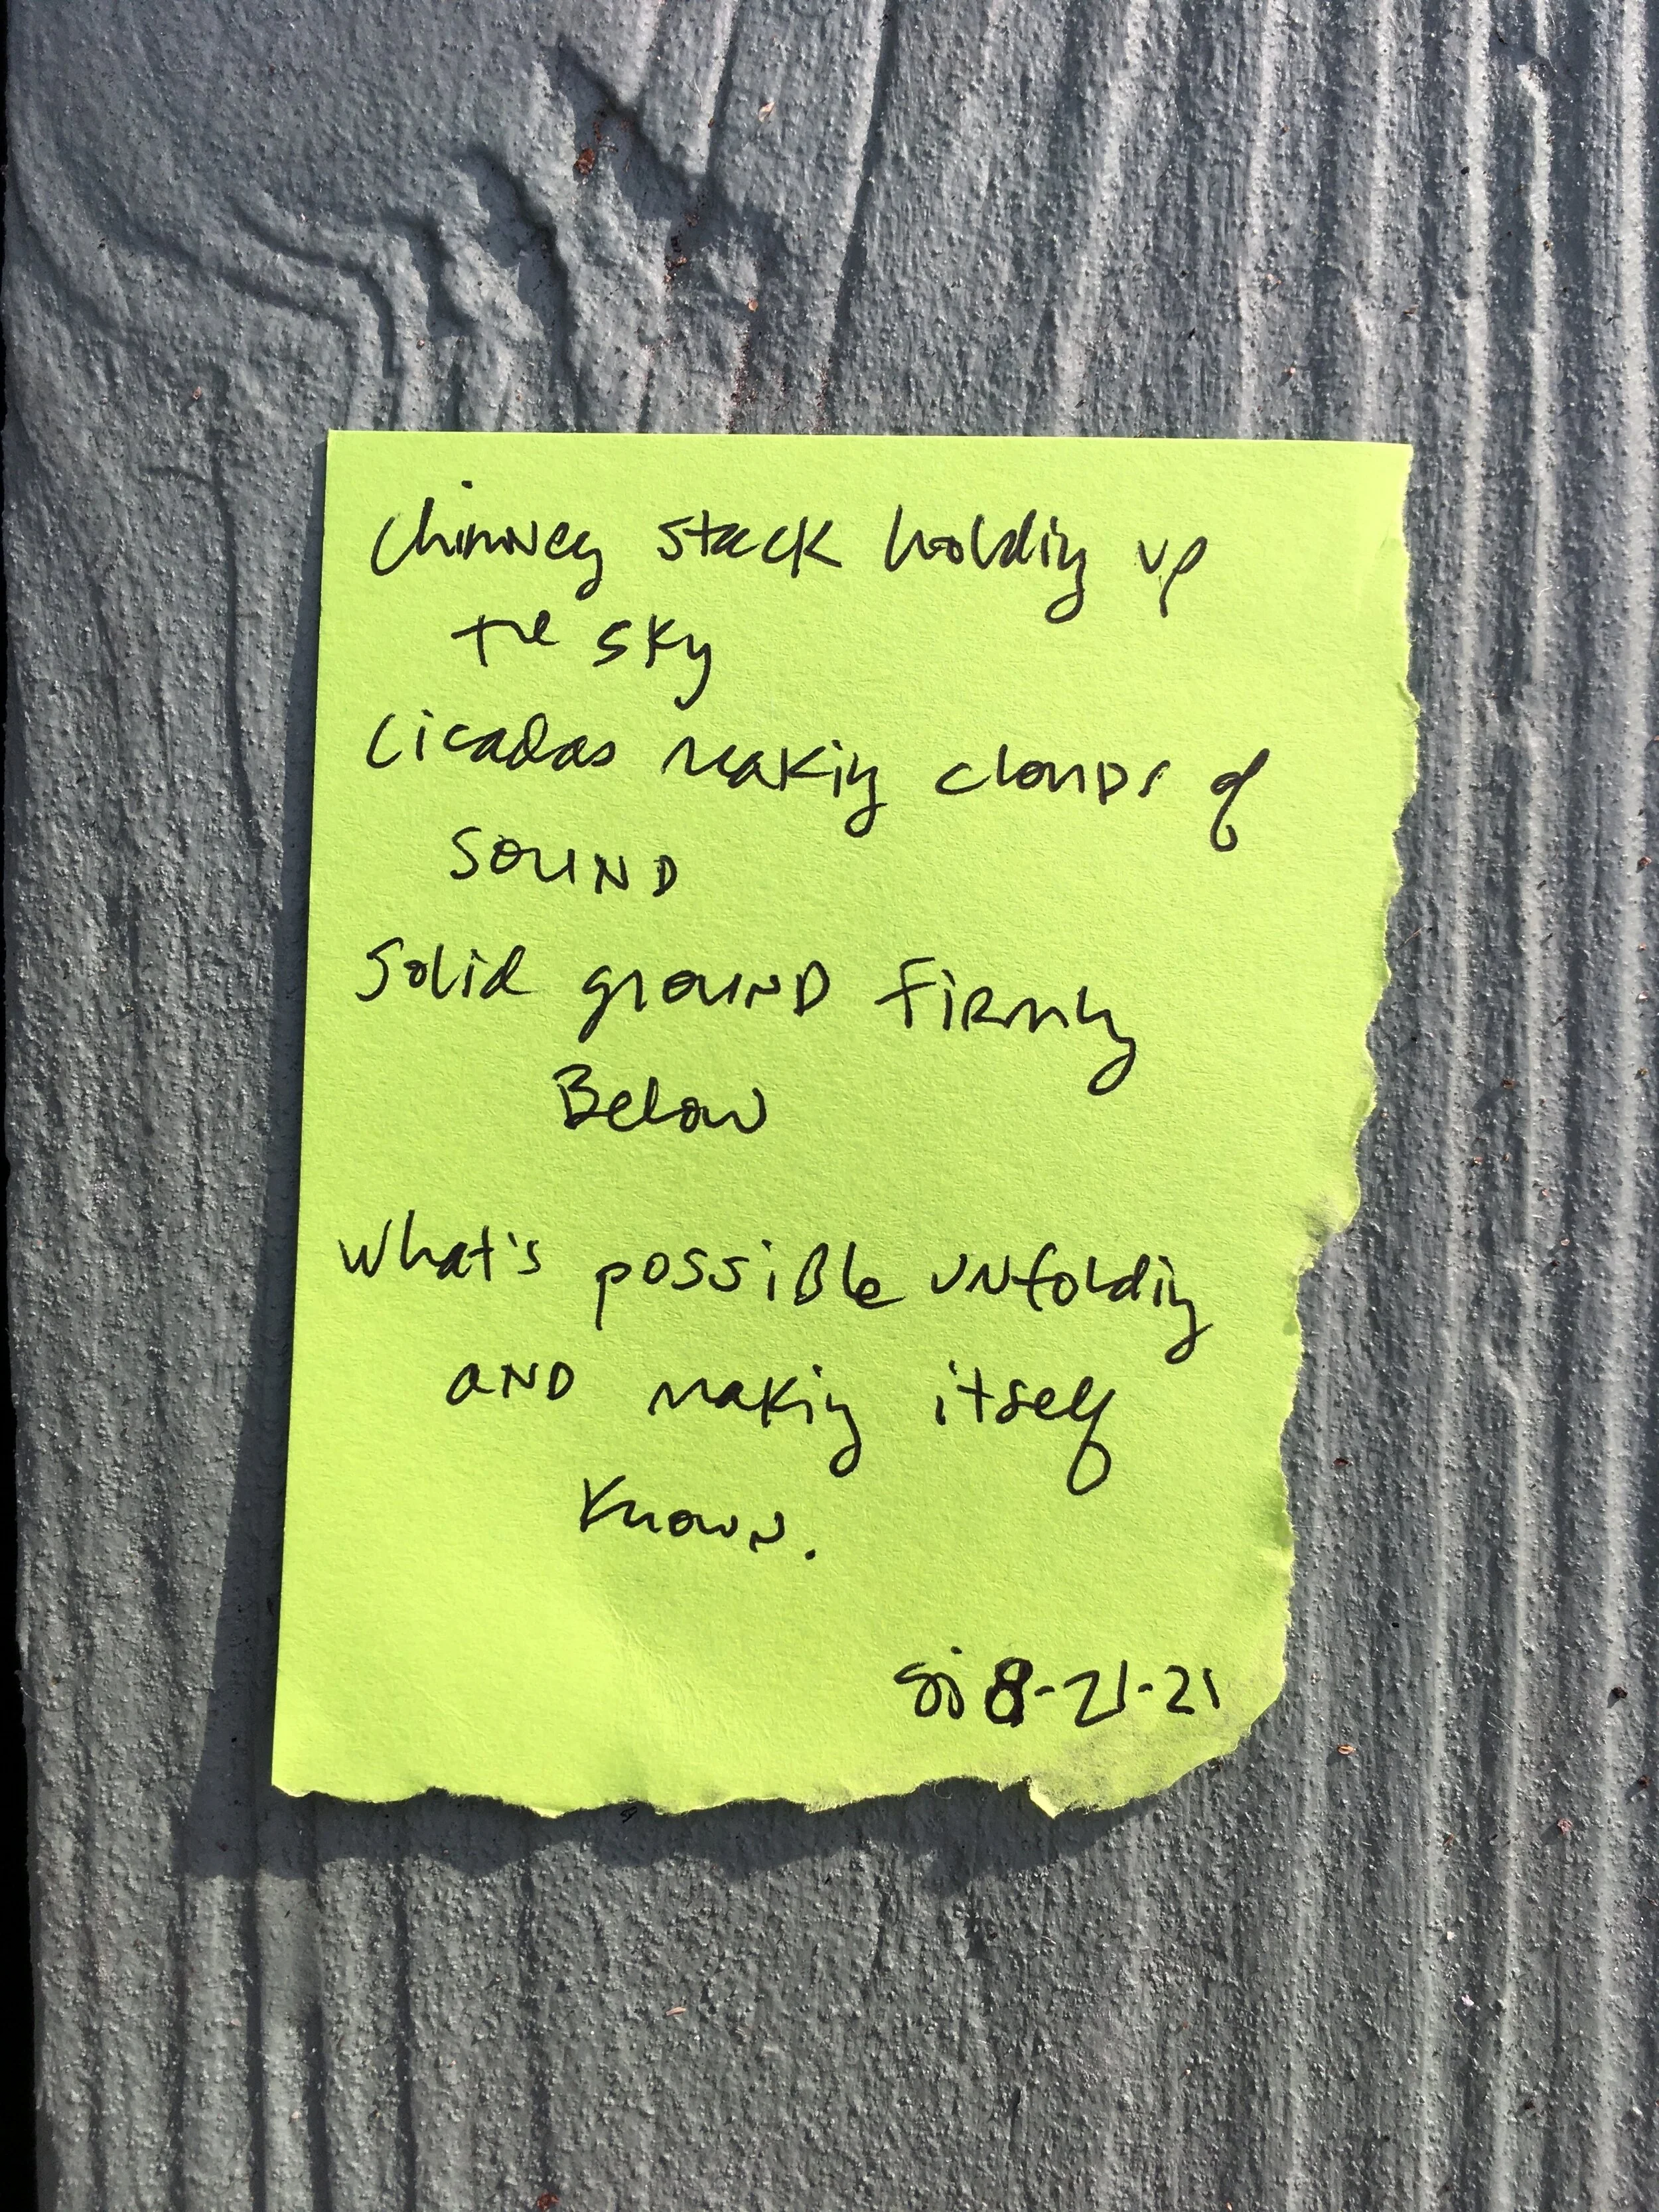 Chimney stack holding up
the sky
Cicadas making clouds of
sound
Solid ground firmly
Below
What's possible unfolding
and making itself
Known.
sj 8-21-21